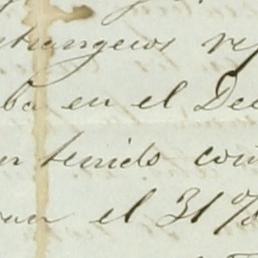 trangeros re
ba en el De
tenido con
el 31%